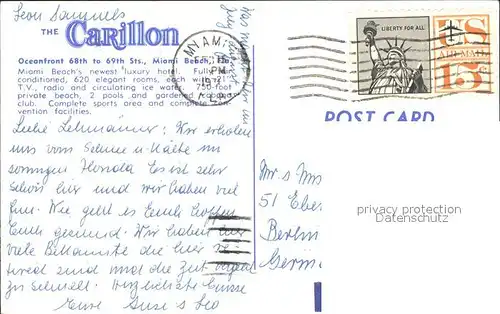 Leon Samuels
THE Carillon
Oceanfront 68th to 69th Sts., Miami Beach, Fla.
Miami Beach's newest luxury hotel. Fully air
conditioned, 620 elegant rooms, each with 21"
T.V., radio and circulating ice water. 750-foot
private beach, 2 pools and gardened cabana
club. Complete sports area and complete
vention facilities.
MIAMI
PM
LIBERTY FOR ALL
US
AIR MAIL
15¢
POST CARD
Liebe Lehmänner: Wir erholen
uns vom Schnee u Kälte im
sonnigen Florida Es ist sehr
schön hier und wir haben viel
Fun. Wie geht es Euch hoffen
Euch gesund. Wir haben hier
viele Bekannte die hier
sind und die Zeit vergeht
zu schnell. Herzliche Grüsse
Eure Suse & Leo
Mr & Mrs
51 Eber
Berlin
Germ
privacy protection
Datenschutz